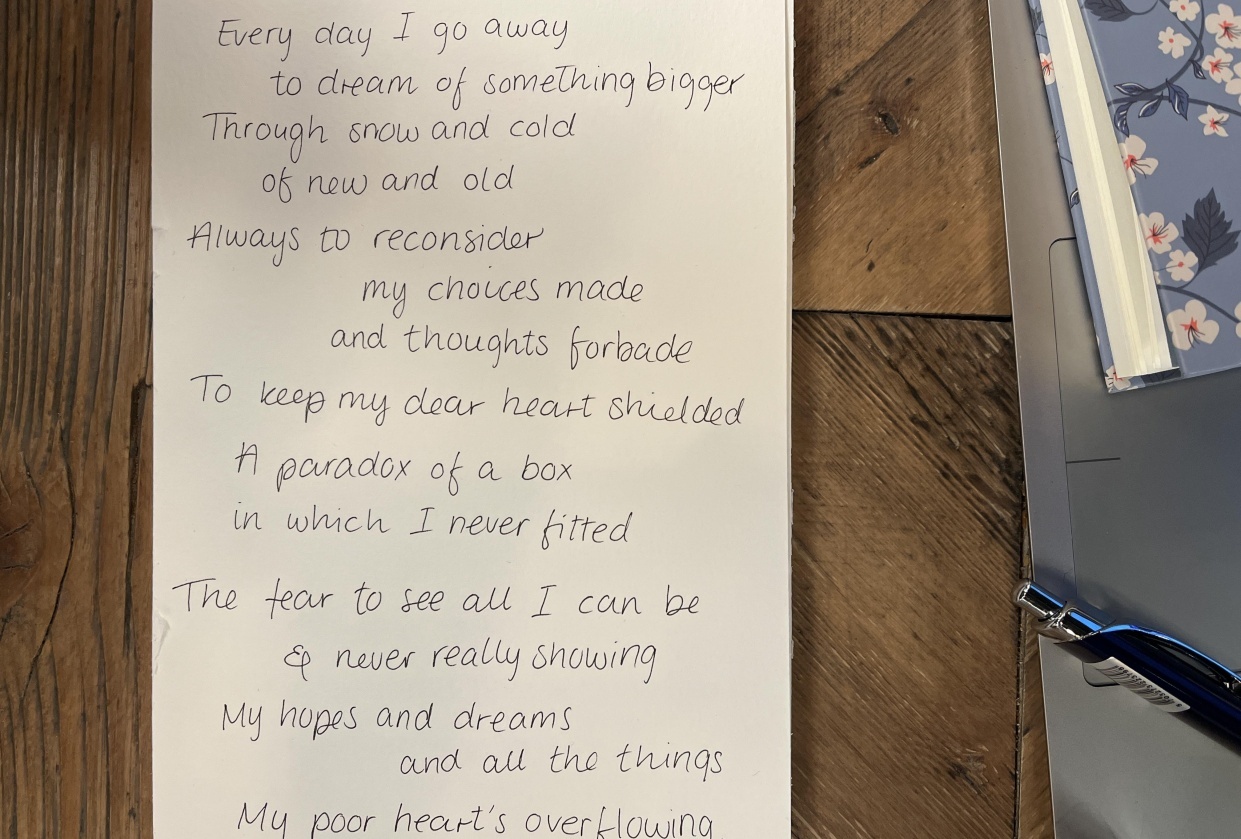 Every day I go away
to dream of something bigger
Through snow and cold
of new and old
Always to reconsider
my choices made
and thoughts forbade
To keep my dear heart shielded
A paradox of a box
in which I never fitted
The fear to see all I can be
& never really showing
My hopes and dreams
and all the things
My poor heart's overflowing